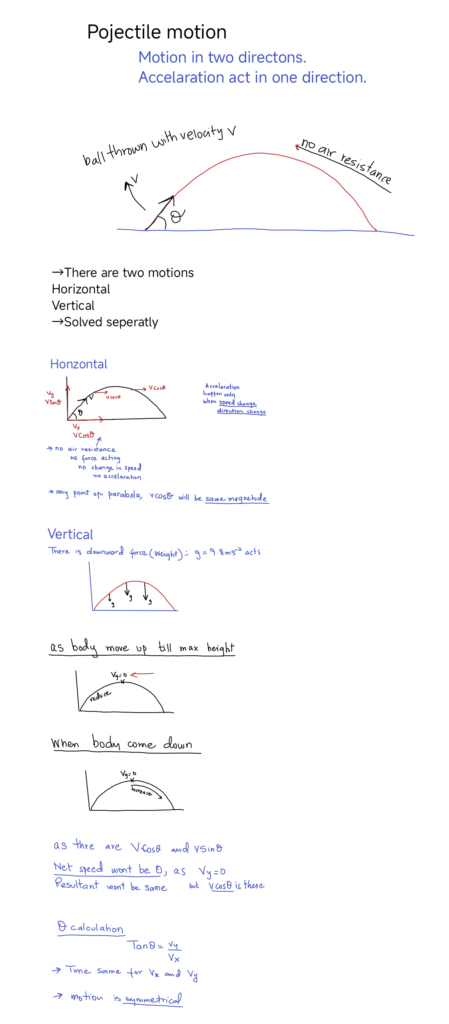 Pojectile motion
Motion in two directons.
Accelaration act in one direction.
ball thrown with velocity v
no air resistance
v
θ
→There are two motions
Horizontal
Vertical
→Solved seperatly
Honzontal
Vy
Vsinθ
v
θ
vcosθ
vcosθ
Vx
VCosθ
Accelaration
happen only
when speed change
direction change
→ no air resistance
no force acting
no change in speed
no accelaration
→ any point of parabola, vcosθ will be same magnetude
Vertical
There is downward force (Weight) ∴ g = 9.8ms⁻² acts
g
g
g
as body move up till max height
Vy=0
reduce
When body come down
Vy=0
increase
as thre are Vcosθ and vsinθ
Net speed wont be 0, as Vy=0
Resultant wont be same but vcosθ is there
θ calculation
Tanθ = Vy/Vx
→ Time same for Vx and Vy
→ motion is symmetrical